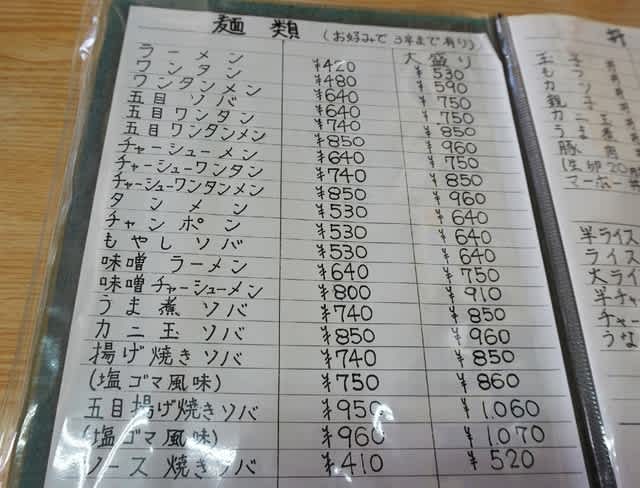 麺 類 (お好みで 3半まで有り)
大盛り
ラーメン ¥420 ¥530
ワンタン ¥480 ¥590
ワンタンメン ¥640 ¥750
五目 ソバ ¥640 ¥750
五目ワンタン ¥740 ¥850
五目ワンタンメン ¥850 ¥960
チャーシューメン ¥640 ¥750
チャーシューワンタン ¥740 ¥850
チャーシューワンタンメン ¥850 ¥960
タンメン ¥530 ¥640
チャンポン ¥530 ¥640
もやし ソバ ¥530 ¥640
味噌 ラーメン ¥640 ¥750
味噌チャーシューメン ¥800 ¥910
うま煮 ソバ ¥740 ¥850
カニ玉 ソバ ¥850 ¥960
揚げ焼き ソバ ¥740 ¥850
(塩ゴマ風味) ¥750 ¥860
五目揚げ焼きソバ ¥950 ¥1.060
(塩ゴマ風味) ¥960 ¥1.070
ソース焼きソバ ¥410 ¥520
玉子
カツ
親子
カニ玉
うま煮
豚
マーボー
半ライス
ライス
大ライス
半チャ
チャー
うな